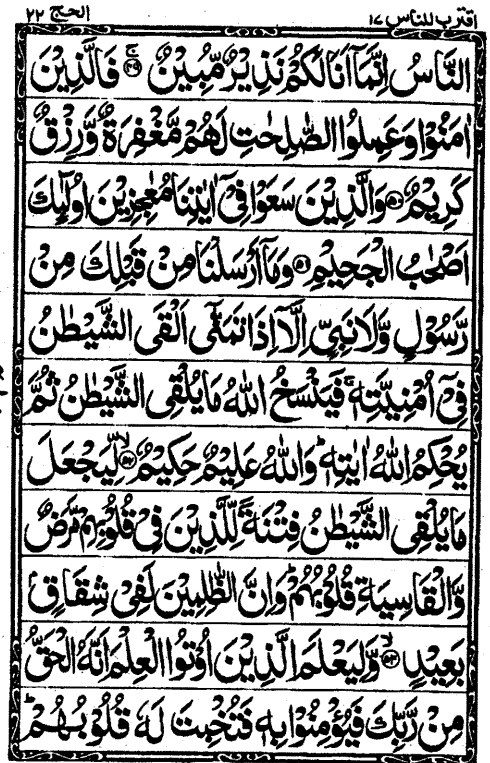 اقترب للناس ۱۷
الحج ۲۲
النَّاسُ اِنَّمَاۤ اَنَا لَكُمْ نَذِيْرٌ مُّبِيْنٌ ۚ۝۴۹ فَالَّذِيْنَ
اٰمَنُوْا وَعَمِلُوا الصّٰلِحٰتِ لَهُمْ مَّغْفِرَةٌ وَّرِزْقٌ
كَرِيْمٌ ۝۵۰ وَالَّذِيْنَ سَعَوْا فِيْۤ اٰيٰتِنَا مُعٰجِزِيْنَ اُولٰٓئِكَ
اَصْحٰبُ الْجَحِيْمِ ۝۵۱ وَمَاۤ اَرْسَلْنَا مِنْ قَبْلِكَ مِنْ
رَّسُوْلٍ وَّلَا نَبِيٍّ اِلَّاۤ اِذَا تَمَنّٰۤى اَلْقَى الشَّيْطٰنُ
فِيْۤ اُمْنِيَّتِهٖ ۚ فَيَنْسَخُ اللّٰهُ مَا يُلْقِى الشَّيْطٰنُ ثُمَّ
يُحْكِمُ اللّٰهُ اٰيٰتِهٖ ؕ وَاللّٰهُ عَلِيْمٌ حَكِيْمٌ ۙ۝۵۲ لِّيَجْعَلَ
مَا يُلْقِى الشَّيْطٰنُ فِتْنَةً لِّلَّذِيْنَ فِيْ قُلُوْبِهِمْ مَّرَضٌ
وَّالْقَاسِيَةِ قُلُوْبُهُمْ ؕ وَاِنَّ الظّٰلِمِيْنَ لَفِيْ شِقَاقٍۭ
بَعِيْدٍ ۙ۝۵۳ وَّلِيَعْلَمَ الَّذِيْنَ اُوْتُوا الْعِلْمَ اَنَّهُ الْحَقُّ
مِنْ رَّبِّكَ فَيُؤْمِنُوْا بِهٖ فَتُخْبِتَ لَهٗ قُلُوْبُهُمْ ؕ